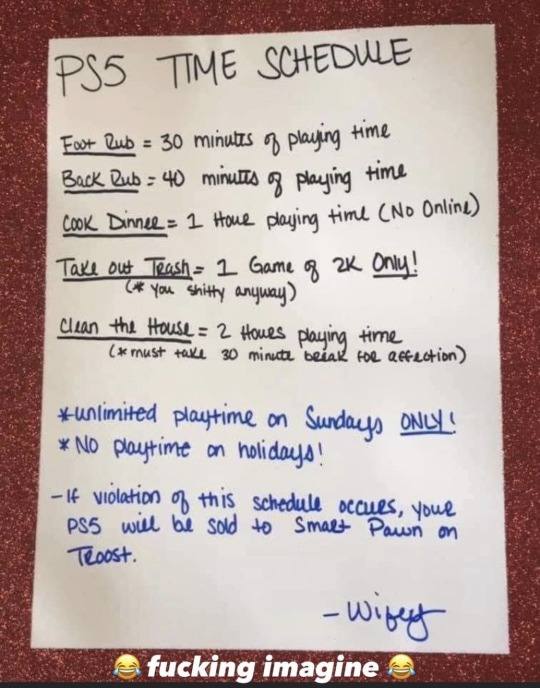 PS5 TIME SCHEDULE
Foot Rub = 30 minutes of playing time
Back Rub = 40 minutes of playing time
Cook Dinner = 1 Hour playing time (No Online)
Take out Trash = 1 Game of 2K Only!
(* you shitty anyway)
Clean the House = 2 Hours playing time
(* must take 30 minute break for affection)
* unlimited playtime on Sundays ONLY!
* NO playtime on holidays!
- If violation of this schedule occurs, your
PS5 will be sold to Smart Pawn on
Troost.
- Wifey
😂 fucking imagine 😂